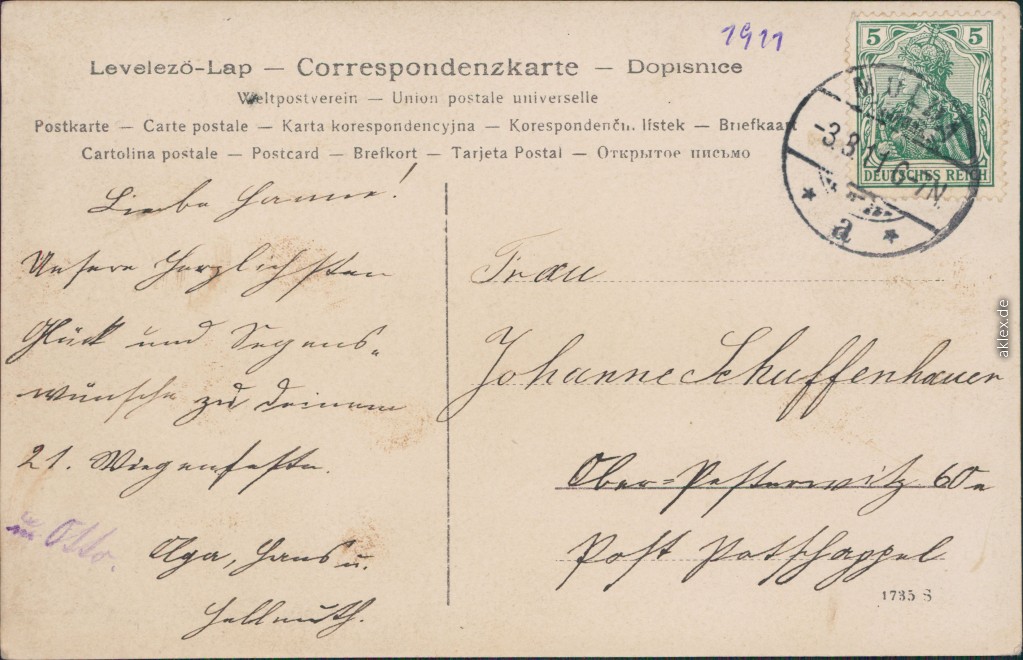 1911
Levelező-Lap — Correspondenzkarte — Dopisnice
Weltpostverein — Union postale universelle
Postkarte — Carte postale — Karta korespondencyjna — Korespondenčn. lístek — Briefkaart
Cartolina postale — Postcard — Brefkort — Tarjeta Postal — Открытое письмо
5 5
DEUTSCHES REICH
-3.8.11 6-7N.
* a *
Liebe Hanne!
Unsere herzlichsten
Glück und Segens-
wünsche zu deinem
21. Wiegenfeste.
Olga, Hans u.
Hellmuth.
u Otto.
Frau
Johanne Schuffenhauer
Ober=Pesterwitz 60e
Post Potschappel
1735 S
aklex.de